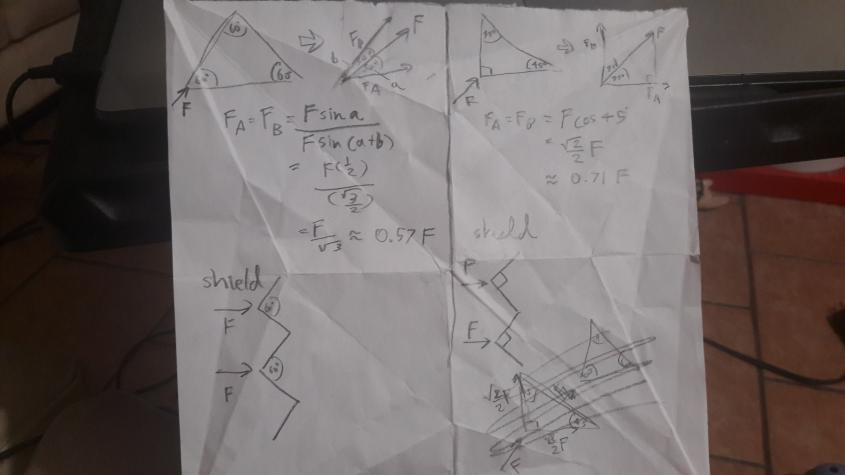 60°
60°
60
F
F_B
F
b
F_A
a
F_A = F_B = F sin a / F sin (a+b)
= F(1/2) / (√3/2)
= F/√3 ≈ 0.57 F
45°
F
F_B
F
F_A
F_A = F_B = F cos 45°
= √2/2 F
≈ 0.71 F
shield
F
60°
F
60°
shield
F
F
√2/2 F
√2/2 F
F